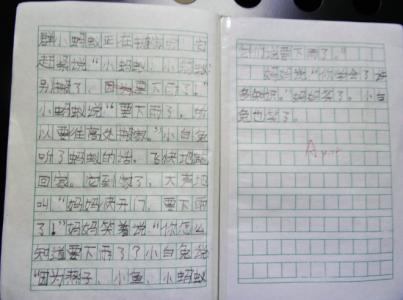 群小蚂蚁正在搬家，它
赶紧说"小蚂蚁，小蚂蚁
别搬了，要下雨了！"
小蚂蚁说"要下雨了，所
以要往高处搬家。"小白兔
听了蚂蚁的话，飞快地跑
回家。它到家了，大声地
叫"妈妈快开门，要下雨
了！"妈妈笑着说"你怎么
知道要下雨了了小白兔说
"因为燕子、小鱼、小蚂蚁
它们说要下雨了。"
妈妈说"你学会了许
多知识。"妈妈笑了。小白
兔也笑了。